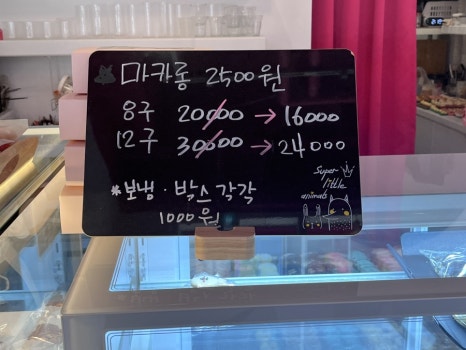 마카롱 2500원
8구 20000 → 16000
12구 30000 → 24000
*보냉·박스 각각
1000원
super
little
animals